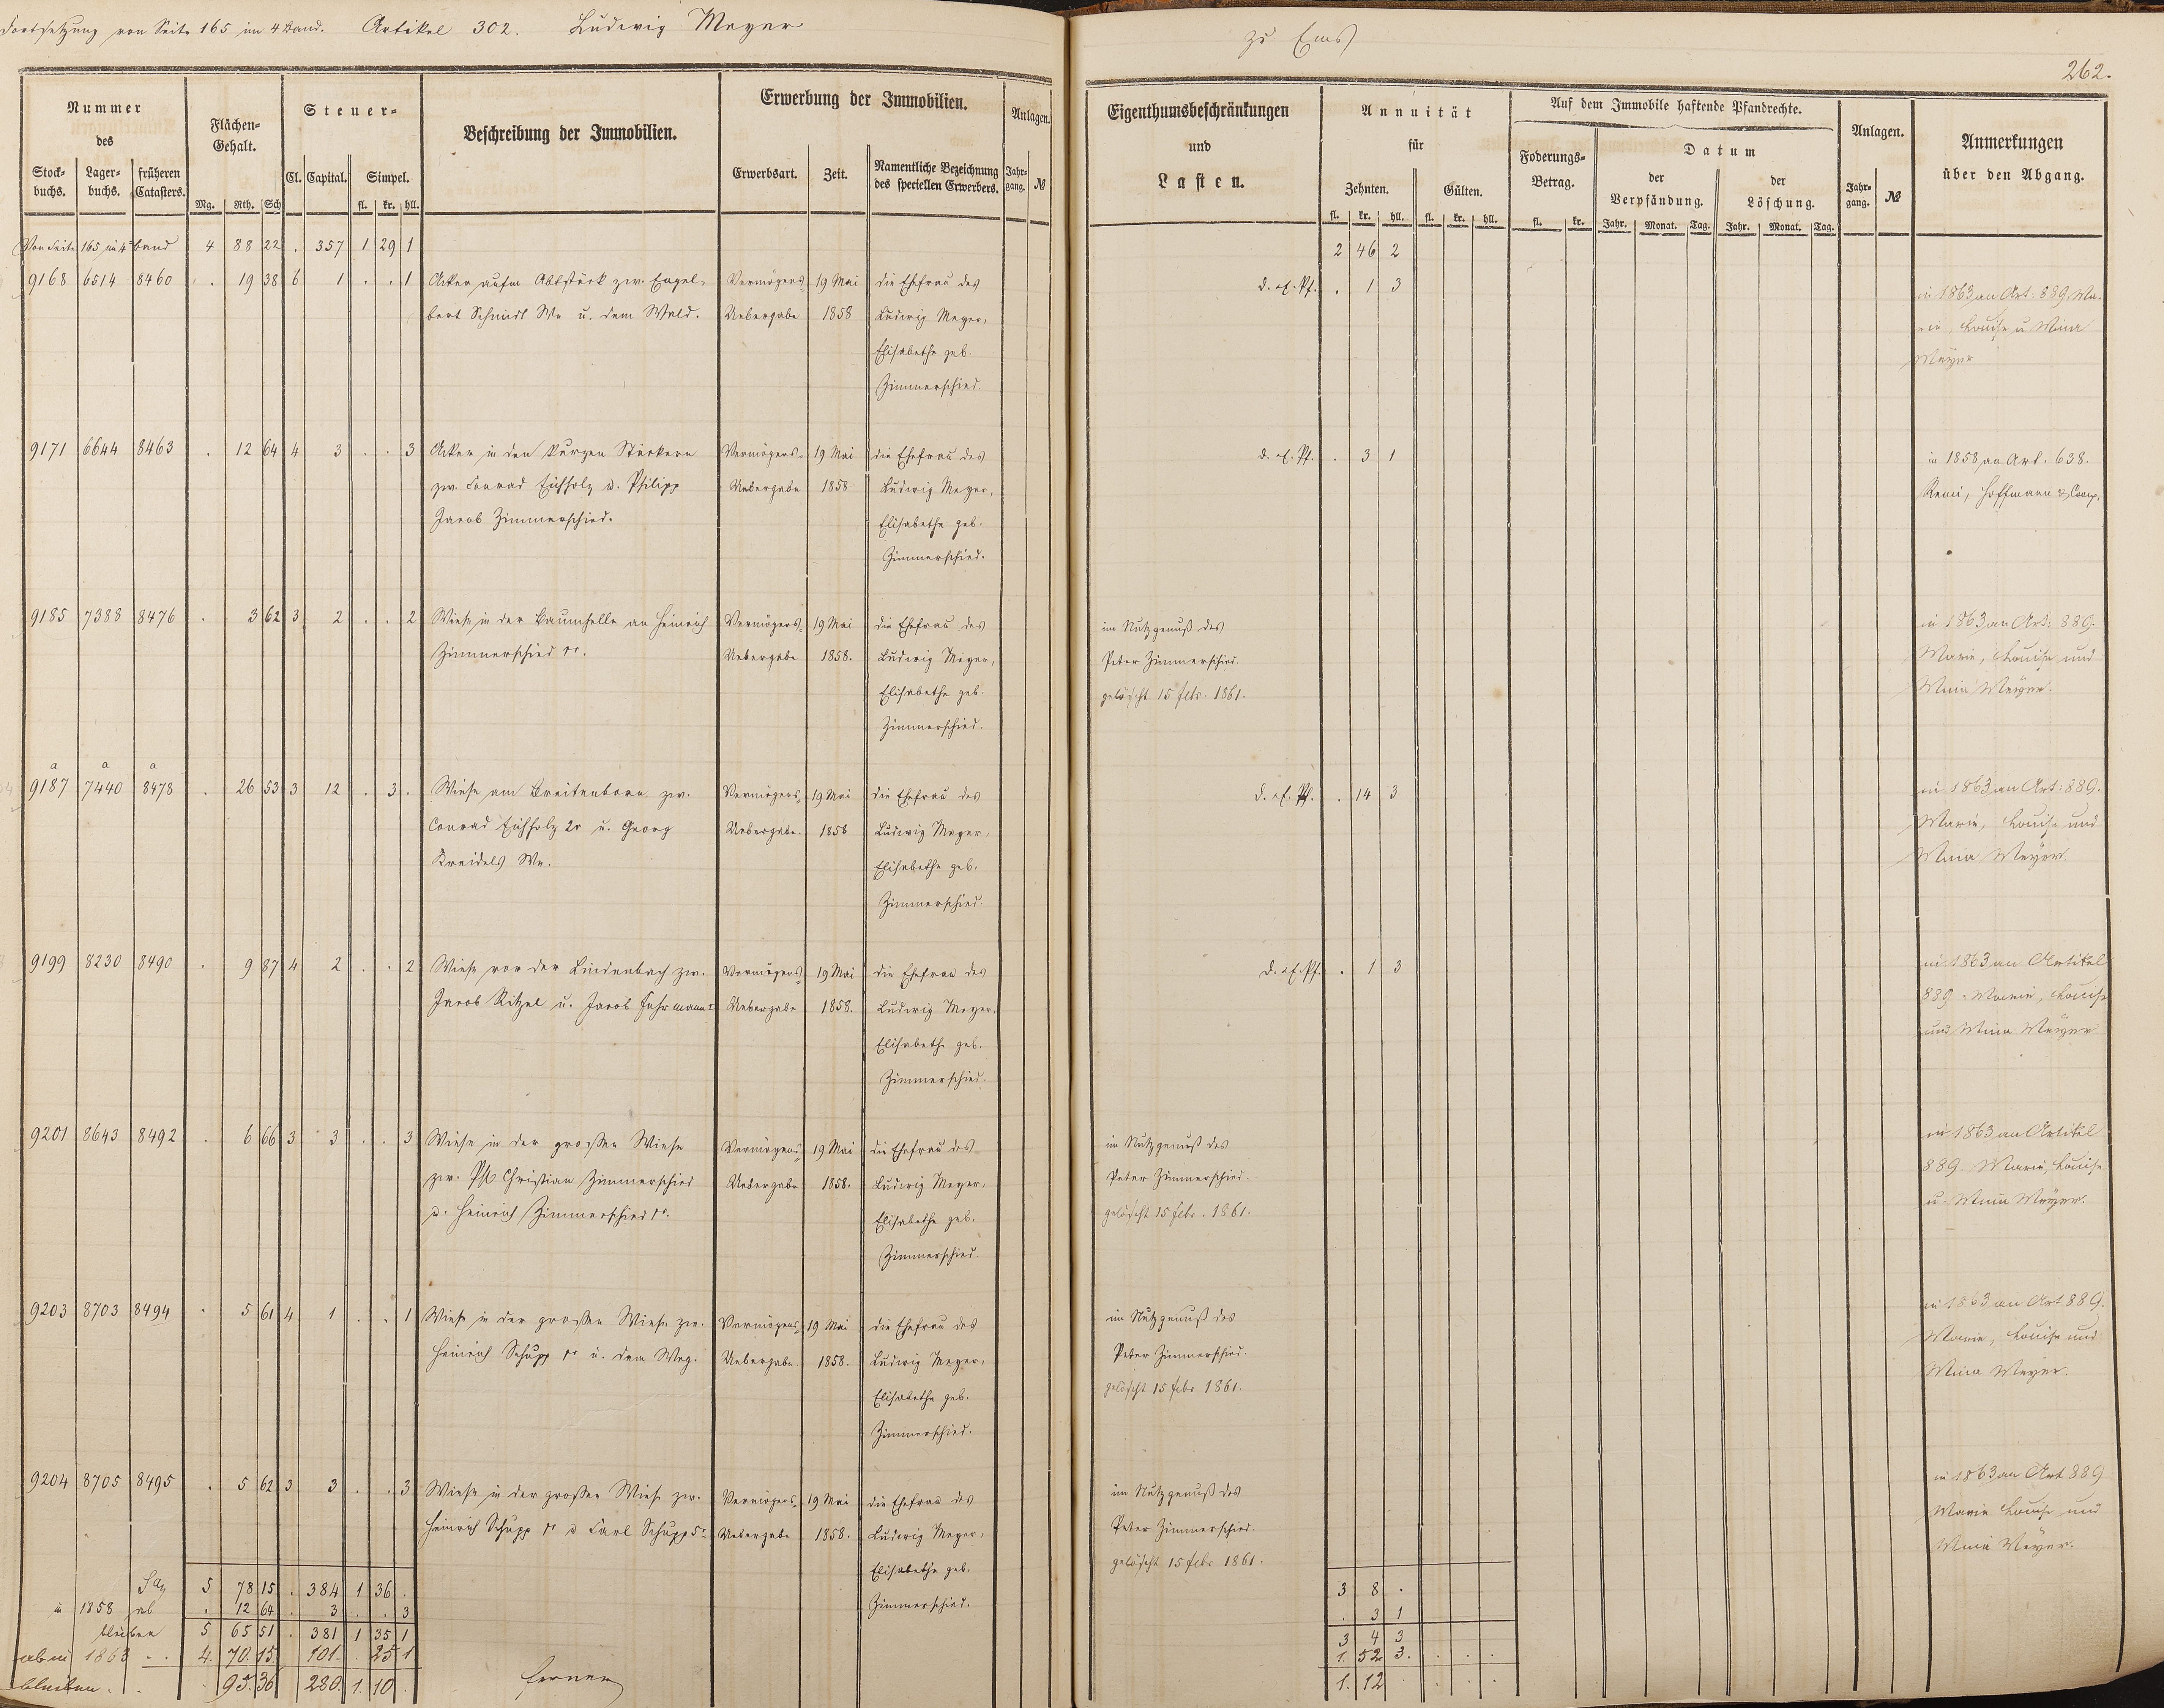 Fortsetzung von Seite 165 im 4 Band. Artikel 302. Ludwig Meyer zu Ems
262.
Nummer des
Stockbuchs. Lagerbuchs. früheren Catasters.
Flächen-Gehalt.
Mg. Rth. Sch
Steuer-
Cl. Capital. Simpel.
fl. kr. hll.
Beschreibung der Immobilien.
Erwerbung der Immobilien.
Erwerbsart. Zeit. Namentliche Bezeichnung des speciellen Erwerbers.
Anlagen.
Jahrgang. №
Eigenthumsbeschränkungen und Lasten.
Annuität für
Zehnten. Gülten.
fl. kr. hll. fl. kr. hll.
Auf dem Immobile haftende Pfandrechte.
Foderungs-Betrag.
fl. kr.
Datum
der Verpfändung. der Löschung.
Jahr. Monat. Tag. Jahr. Monat. Tag.
Anlagen.
Jahrgang. №
Anmerkungen über den Abgang.
Von Seite 165 im 4r Band 4 88 22 . 357 1 29 1 2 46 2
9168 6514 8460 . 19 38 6 1 . . 1 Acker aufm zw. Engel- Vermögens- 19 Mai die Ehefrau des . 1 3 in 1863 an Art: 889. Ma-
bert Schmidt We u. dem Wald. Uebergabe 1858 Ludwig Meyer, rie, Louise u Mina
Elisabethe geb. Meyer
Zimmerschied.
9171 6644 8463 . 12 64 4 3 . . 3 Acker in den kurzen Stücken Vermögens- 19 Mai die Ehefrau des . 3 1 in 1858 an Art. 638.
zw. Conrad Eichholz u. Philipp Uebergabe 1858 Ludwig Meyer, Remi, Hoffmann & Comp.
Jacob Zimmerschied. Elisabethe geb.
Zimmerschied.
9185 7388 8476 . 3 62 3 2 . . 2 Wiese in der Baumhelle an Heinrich Vermögens- 19 Mai die Ehefrau des im Nutzgenuß des in 1863 an Art: 889.
Zimmerschied 1r. Uebergabe 1858. Ludwig Meyer, Peter Zimmerschied. Marie, Louise und
Elisabethe geb. gelöscht 15 Febr. 1861. Mina Meyer.
Zimmerschied.
a a a
9187 7440 8478 . 26 53 3 12 . 3 . Wiese am Breitenborn zw. Vermögens- 19 Mai die Ehefrau des . 14 3 in 1863 an Art: 889.
Conrad Eichholz 2r u. Georg Uebergabe. 1858 Ludwig Meyer, Marie, Louise und
Kreidels We. Elisabethe geb. Mina Meyer.
Zimmerschied.
9199 8230 8490 . 9 87 4 2 . . 2 Wiese vor der Lindenbach zw. Vermögens- 19 Mai die Ehefrau des . 1 3 in 1863 an Artikel
Jacob Ritzel u. Jacob Fuhrmann Uebergabe 1858. Ludwig Meyer, 889. Marie, Louise
Elisabethe geb. und Mina Meyer
Zimmerschied.
9201 8643 8492 . 6 66 3 3 . . 3 Wiese in der großen Wiese Vermögens- 19 Mai die Ehefrau des im Nutzgenuß des in 1863 an Artikel
zw. Christian Zimmerschied Uebergabe 1858. Ludwig Meyer, Peter Zimmerschied. 889. Marie, Louise
u. Heinrich Zimmerschied 1r. Elisabethe geb. gelöscht 15 Febr. 1861. u. Mina Meyer.
Zimmerschied
9203 8703 8494 . 5 61 4 1 . . 1 Wiese in der großen Wiese zw. Vermögens- 19 Mai die Ehefrau des im Nutzgenuß des in 1863 an Art 889.
Heinrich Schupp 1r u. dem Weg. Uebergabe. 1858. Ludwig Meyer, Peter Zimmerschied. Marie, Louise und
Elisabethe geb. gelöscht 15 Febr 1861. Mina Meyer.
Zimmerschied.
9204 8705 8495 . 5 62 3 3 . . 3 Wiese in der großen Wiese zw. Vermögens- 19 Mai die Ehefrau des im Nutzgenuß des in 1863 an Art 889
Heinrich Schupp 1r u Carl Schupp 5r Uebergabe 1858. Ludwig Meyer, Peter Zimmerschied. Marie Louise und
Elisabethe geb. gelöscht 15 Febr 1861. Mina Meyer.
Zimmerschied.
5 78 15 . 384 1 36 . 3 8 .
in 1858 ab . 12 64 . 3 . . 3 . 3 1
bleiben 5 65 51 . 381 1 35 1 3 4 3
ab in 1863 4. 70. 15. 101. . 25 1 1. 52 3.
bleiben . 95. 36 280. 1. 10 . ferner 1. 12